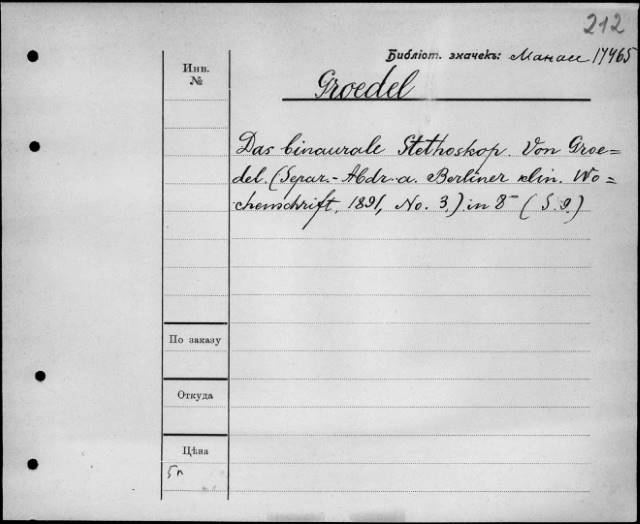 212
Библіот. значекъ: Манаи 17465
Инв.
№
Groedel
Das binaurale Stethoskop. Von Groe=
del. (Separ.-Abdr. a. Berliner klin. Wo=
chenschrift. 1891, No. 3.) in 8° (S. 9.)
По заказу
Откуда
Цѣна
5 п